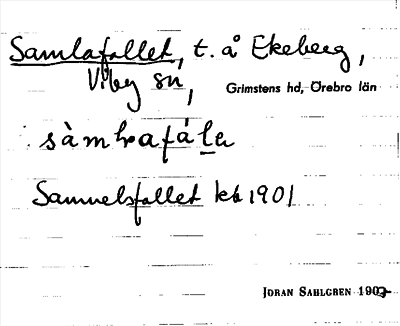 Samlafallet, t. å Ekeberg,
Viby sn,
Grimstens hd, Örebro län
Samuelsfallet kb 1901
JÖRAN SAHLGREN 190